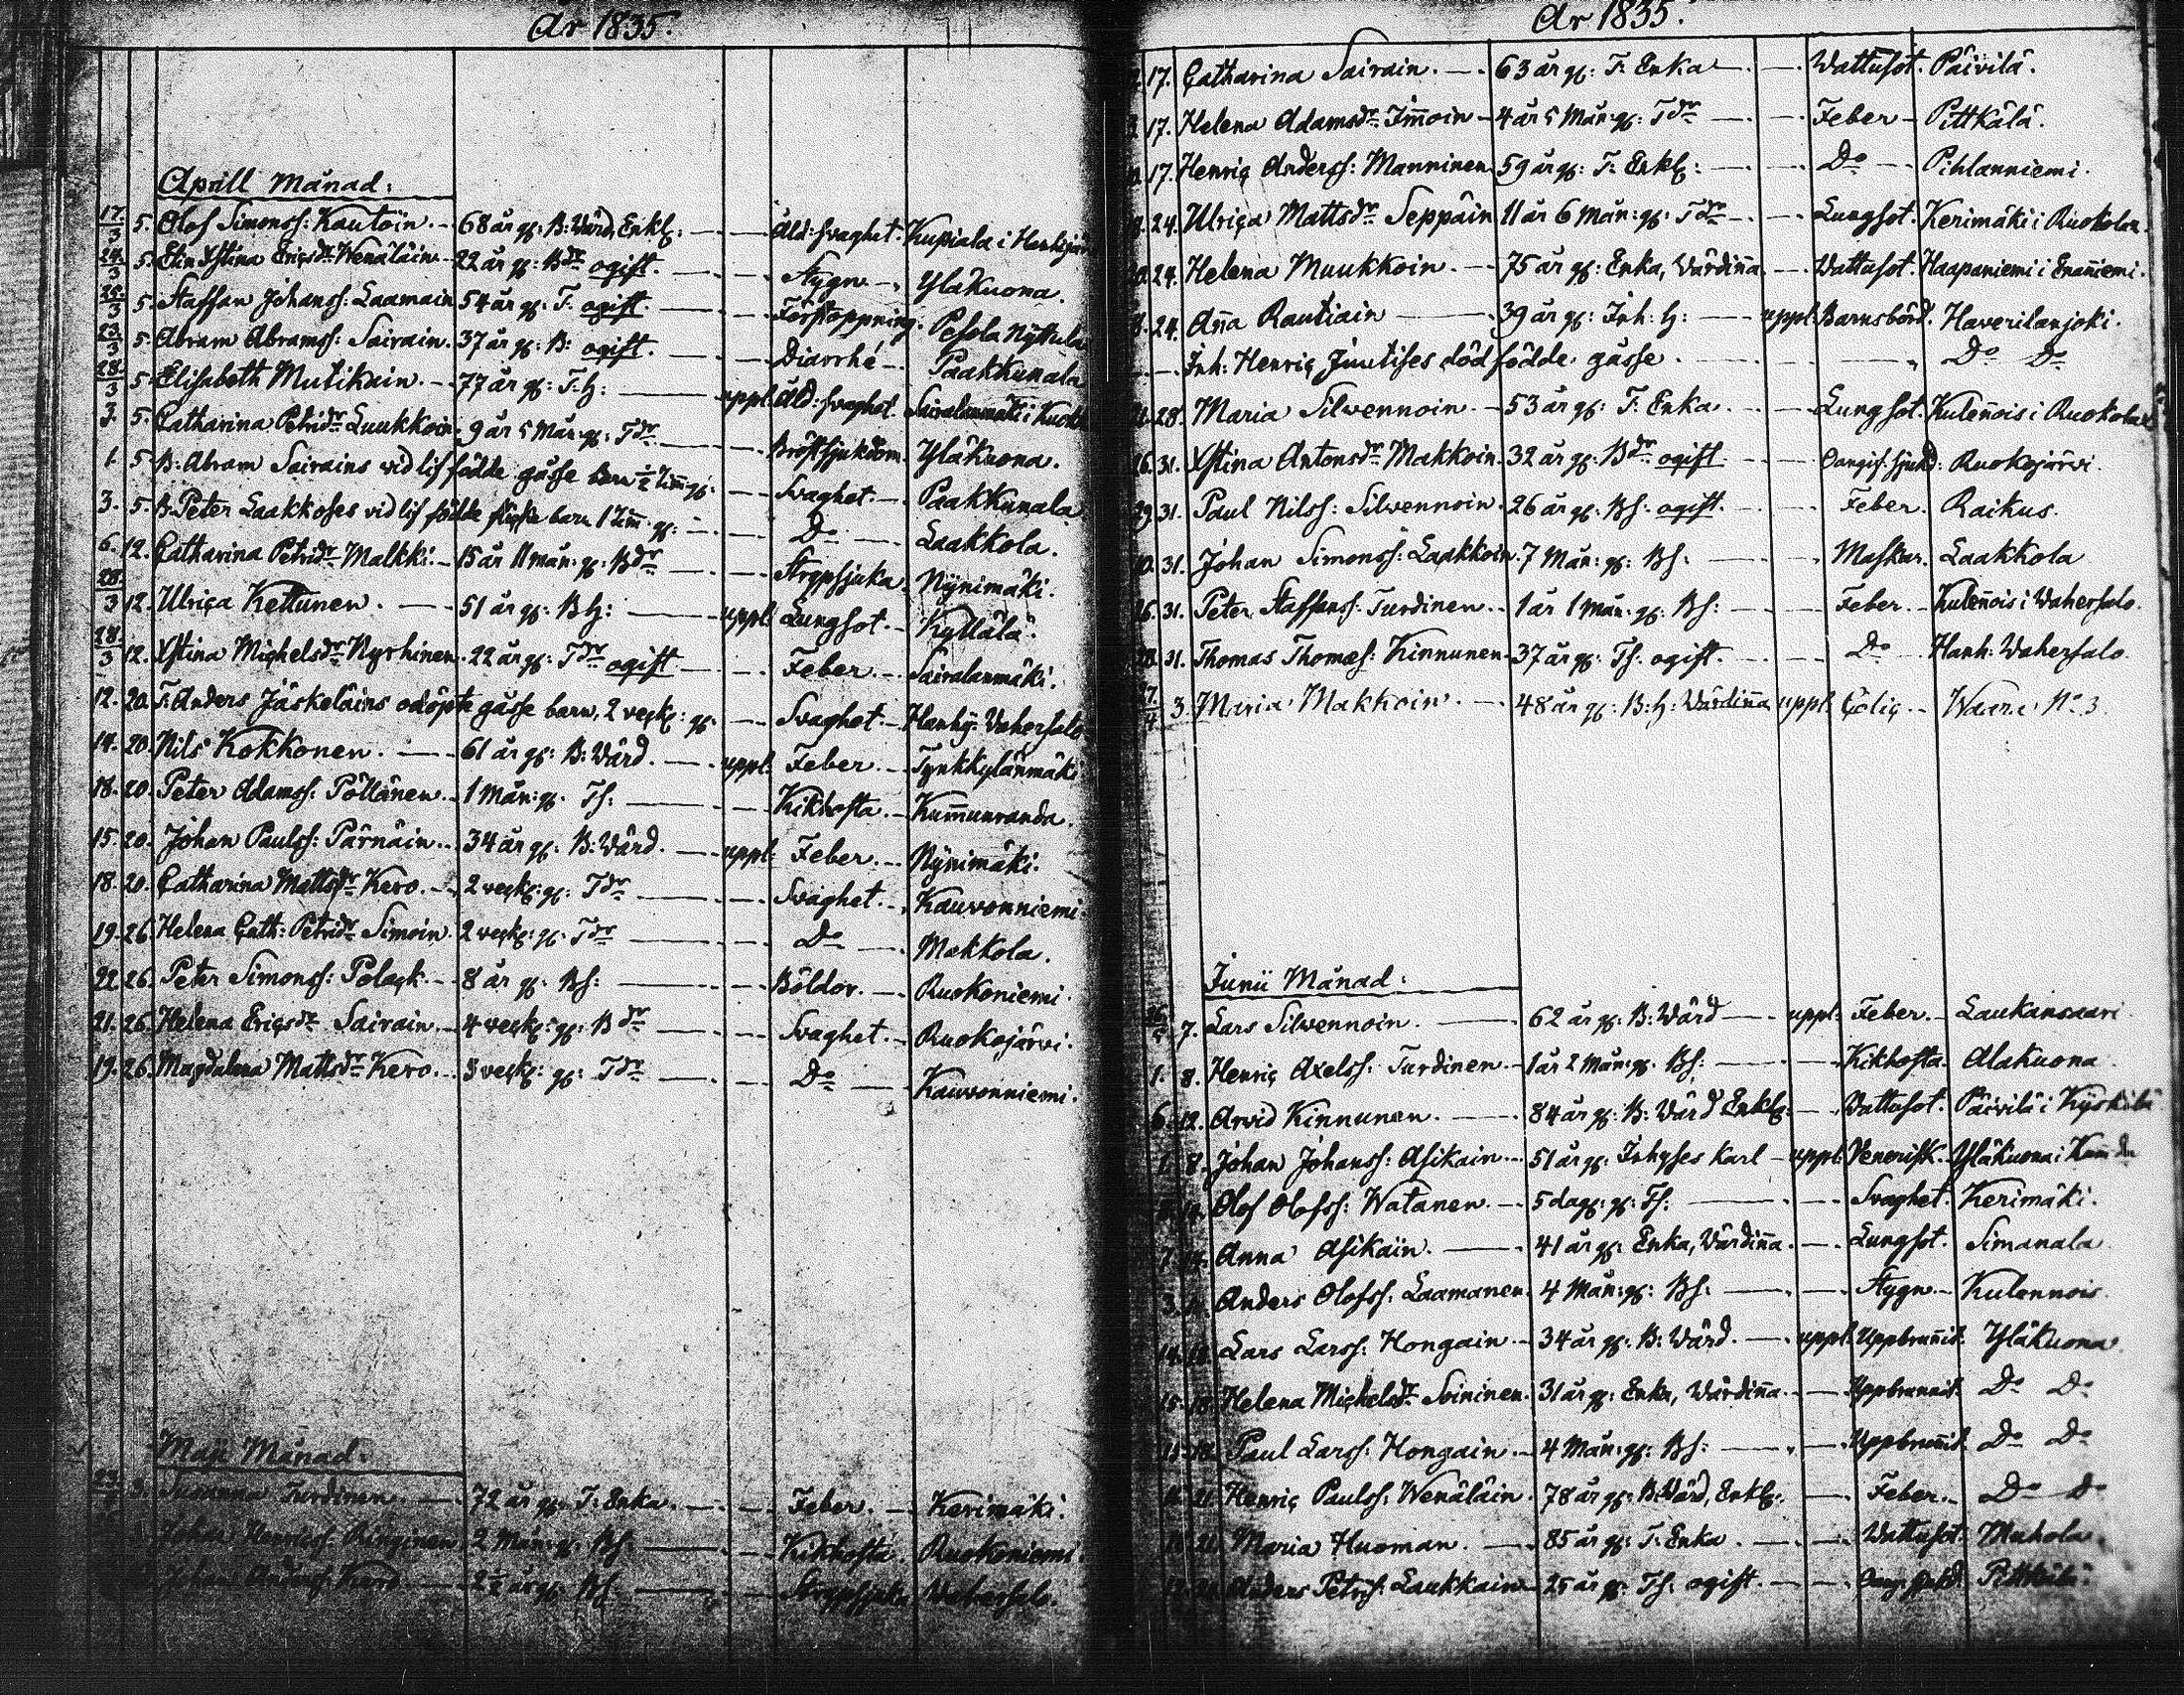 År 1835.
Aprill Månad:
17/3 5. Olof Simonss: Kautoin. — 68 år gl: B: Wärd, Enkl: — Åld: svaghet. Kupiala i
24/3 5. Elin Xstina Ericsdr Wenäläin — 22 år gl: Bdr ogift. — Stygn — Yläkuona.
25/3 5. Staffan Johanss: Laamain 54 år gl: T: ogift. — Förstoppning. Pesola Nyttula
23/3 5. Abram Abramss: Sairain. 37 år gl: B: ogift. — Diarrhé — Paakkunala
28/3 5. Elisabeth Mutikain. — 77 år gl: T: H: — uppl: Åld: svaghet. Sairalanmäki i
3. 5. Catharina Petridr Luukkoin. 9 år 5 Mån: gl: Tdr — Bröstsjukdom. Yläkuona.
1. 5. B: Abram Sairains vid lif födde gåsse barn ½ Tim: gl: — Svaghet. — Paakkunala
3. 5. B: Peter Laakkoses vid lif födde barn 1 Tim: gl: — Do — Laakkola.
6. 12. Catharina Petridr Malkki. — 15 år 11 mån: gl: Bdr — Strypsjuka. Nÿnimäki.
28/3 12. Ulrica Kettunen. — 51 år gl: B H: — uppl: Lungsot. — Kyllälä.
28/3 12. Xstina Michelsdr Nyrhinen. 22 år gl: Tdr ogift — Feber. — Sairalanmäki.
12. 20. T: Anders Jäskeläins odöpte gåsse barn, 2 veck: gl: — Svaghet. — Hanhij: Vahersalo
14. 20. Nils Kokkonen. — 61 år gl: B: Wärd. — uppl: Feber. — Tynkkylänmäki
18. 20. Peter Adamss: Pöllänen. 1 Mån: gl. Ts: — Kikhosta. — Kummunranda.
15. 20. Johan Paulss: Pärnäin. 34 år gl: B: Wärd. — uppl: Feber. — Nÿnimäki.
18. 20. Catharina Mattsdr Kero. — 2 veck: gl: Tdr — Svaghet. — Kauvonniemi.
19. 26. Helena Cath: Petridr Simoin. 2 veck: gl: Tdr — Do — Makkola.
22. 26. Peter Simonss: Polack. — 8 år gl: Bs: — Böldor. — Ruokoniemi.
21. 26. Helena Ericsdr Sairain. — 4 veck: gl: Bdr — Svaghet. — Ruokojärvi.
19. 26. Magdalena Mattsdr Kero. 3 veck: gl: Tdr — Do — Kauvonniemi.
Maji Månad:
3. Susanna Turdinen. — 72 år gl: T: Enka. — Feber. — Kerimäki.
Johan Henricss: 2 Mån: gl: Bs: — Kikhosta. Ruokoniemi.
Johan 2½ år gl: Bs: — Strypsjuka Vahersalo.
År 1835.
17. Catharina Sairain. — 63 år gl: T: Enka — Wattusot. Päivilä.
17. Helena Adamsdr Immoin — 4 år 5 Mån: gl: Tdr — Feber — Pittkälä.
17. Henric Anderss: Manninen 59 år gl: T: Enkl: — Do — Pihlanniemi.
24. Ulrica Mattsdr Seppäin 11 år 6 Mån: gl: Tdr — Lungsot. Kerimäki i Ruokolax.
24. Helena Muukkoin. — 75 år gl: Enka, Wärdinna. — Wattusot. Haapaniemi i Enanniemi.
24. Anna Rautiain — 39 år gl: Inh: H: — uppl: Barnsbörd. Haverilanjoki.
Inh: Henric Juutises död födde gåsse. — Do Do
28. Maria Silvennoin. — 53 år gl: T: Enka. — Lungsot. Kulennois i Ruokolax
26. 31. Xstina Antonsdr Makkoin. 32 år gl: Bdr ogift — Oangif: sjukd: Ruokojärvi.
29. 31. Paul Nilss: Silvennoin. 26 år gl: Bs: ogift. — Feber. Raikus.
31. Johan Simonss: Laakkoin. 7 Mån: gl: Bs: — Maskar. Laakkola
26. 31. Peter Staffanss: Turdinen. 1 år 1 Mån: gl: Bs: — Feber. — Kulennois i Wahersalo.
28. 31. Thomas Thomæs: Kinnunen. 37 år gl: Ts: ogift. — Do — Hanh: Wahersalo.
3. Maria Makkoin. — 48 år gl: B: H: Wärdinna uppl: Colic. — Waara No 3.
Junii Månad:
7. Lars Silvennoin. — 62 år gl: B: Wärd — uppl: Feber. — Laukansaari.
1. 8. Henric Axelss: Turdinen. 1 år 2 Mån: gl: Bs: — Kikhosta. Alakuona
6. 12. Arvid Kinnunen. — 84 år gl: B: Wärd Enkl: — Wattusot. Päivilä i
1. 8. Johan Johanss: Asikain. 51 år gl: Inhyses Karl — uppl: Venerisk. Yläkuona i
Olof Olofss: Watanen. — 5 dag: gl: Ts: — Svaghet. Kerimäki.
7. 14. Anna Asikain. — 41 år gl: Enka, Wärdinna. — Lungsot. Simanala
3. Anders Olofss: Laamanen. 4 Mån: gl: Bs: — Stygn. — Kulennois.
Lars Larss: Hongain — 34 år gl: B: Wärd. — uppl: Uppbrunnit. Yläkuona
15. 18. Helena Michelsdr Soininen. 31 år gl: Enka, Wärdinna. — Uppbrunnit. Do Do
Paul Larss: Hongain. — 4 Mån: gl: Bs: — Uppbrunnit. Do Do
21. Henric Paulss: Wenäläin. 78 år gl: B: Wärd, Enkl: — Feber. — Do Do
21. Maria Huoman. — 85 år gl: T: Enka. — Wattusot. Muhola.
Anders Petrss: Laukkain 25 år gl: Ts: ogift. — Oang: sjukd: Pittkälä.